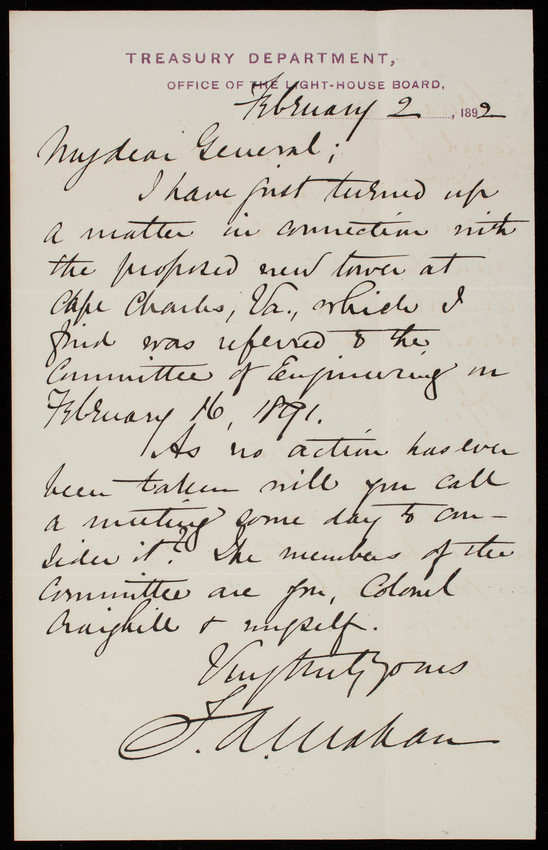 TREASURY DEPARTMENT,
OFFICE OF THE LIGHT-HOUSE BOARD,
February 2, 1892
My dear General;
I have just turned up
a matter in connection with
the proposed new tower at
Cape Charles, Va., which I
find was referred to the
Committee of Engineering on
February 16, 1891.
As no action has ever
been taken will you call
a meeting some day to con-
sider it? The members of the
Committee are you, Colonel
Craighill & myself.
Very truly yours
F. A. Mahan